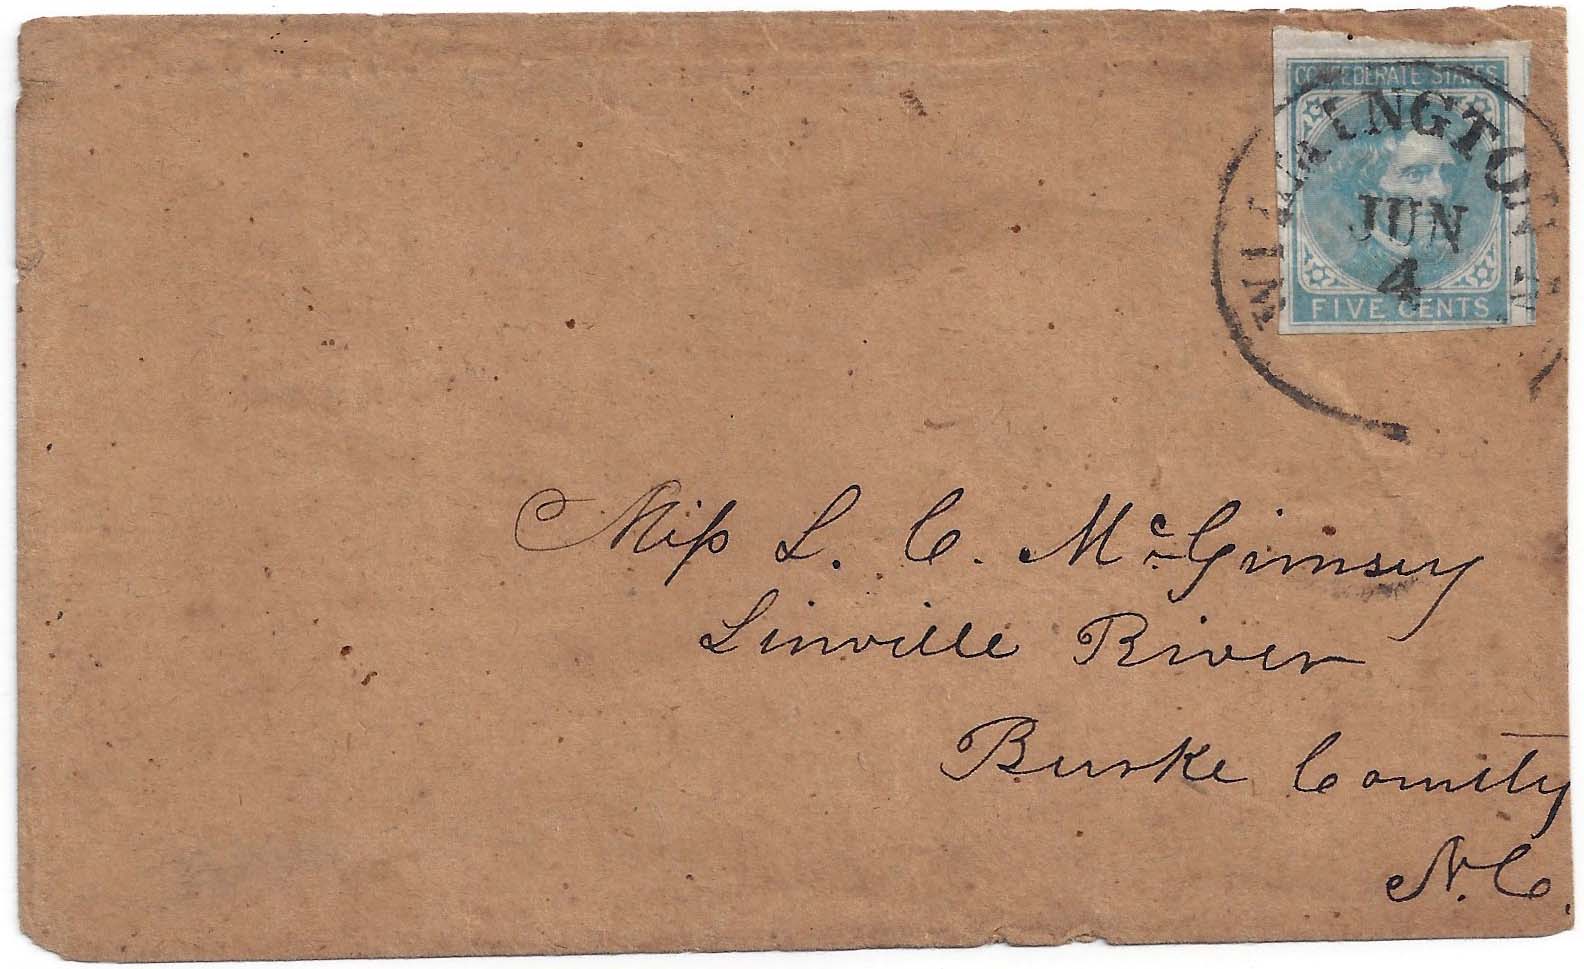 CONFEDERATE STATES
WILMINGTON N
JUN
4
FIVE CENTS
Miss L. C. McGimsey
Linville River
Burke County
N.C.